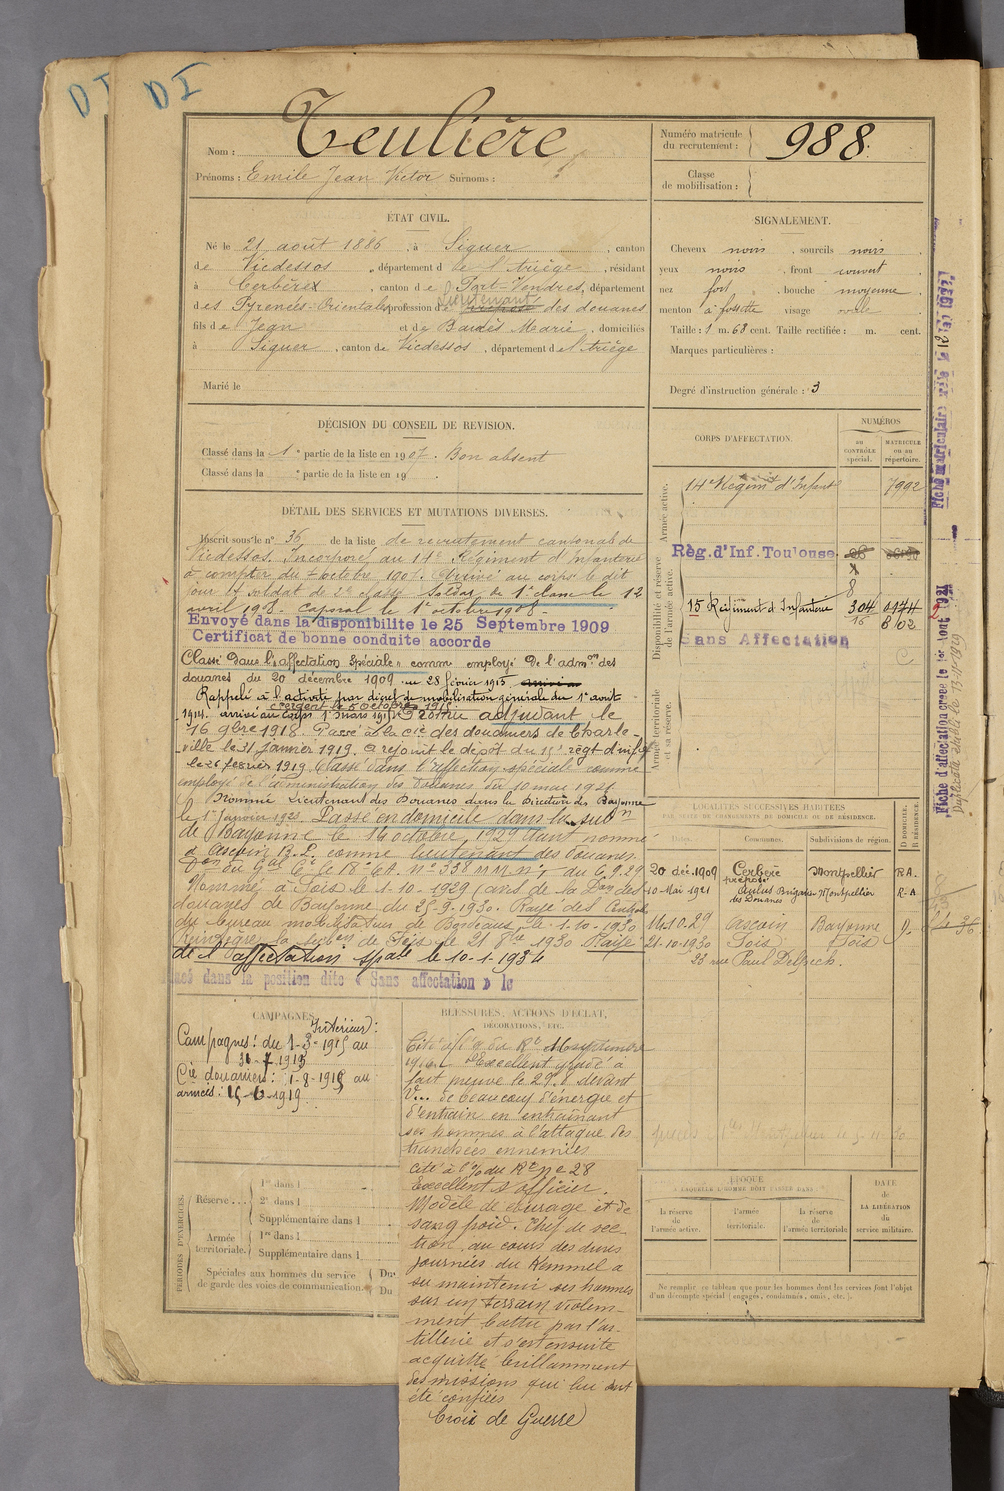 DI
DI
Nom : Teulière
Prénoms : Emile Jean Victor Surnoms :
Numéro matricule du recrutement : 988
Classe de mobilisation :
ÉTAT CIVIL.
Né le 21 août 1886, à Siguer, canton
de Vicdessos, département de l'Ariège, résidant
à Cerbère, canton de Port-Vendres, département
des Pyrénées-Orientales profession de lieutenant des douanes
fils de Jean et de Bardès Marie, domiciliés
à Siguer, canton de Vicdessos, département de l'Ariège
Marié le
SIGNALEMENT.
Cheveux noirs, sourcils noirs
yeux noirs, front couvert
nez fort, bouche moyenne
menton à fossette visage ovale
Taille : 1 m. 68 cent. Taille rectifiée : m. cent.
Marques particulières :
Degré d'instruction générale : 3
DÉCISION DU CONSEIL DE REVISION.
Classé dans la 1e partie de la liste en 1907. Bon absent
Classé dans la e partie de la liste en 19 .
CORPS D'AFFECTATION.
NUMÉROS
au CONTRÔLE spécial.
MATRICULE ou au répertoire.
Armée active.
14e Régimt d'Infant. 7992
Disponibilité et réserve de l'armée active.
Rég. d'Inf. Toulouse
15 Régiment d'Infanterie 304 0174
16 802
Sans Affectation
Armée territoriale et sa réserve.
DÉTAIL DES SERVICES ET MUTATIONS DIVERSES.
Inscrit sous le n° 36 de la liste de recrutement cantonal de
Vicdessos. Incorporé au 14e Régiment d'Infanterie
à compter du 7 octobre 1907. Arrivé au corps le dit
jour et soldat de 2e classe. Soldat de 1e classe le 12
avril 1908. Caporal le 1er octobre 1908.
Envoyé dans la disponibilite le 25 Septembre 1909
Certificat de bonne conduite accorde
Classé dans l'"affectation spéciale" comme employé de l'admon des
douanes du 20 décembre 1909 au 28 février 1915
Rappelé à l'activité par décret de mobilisation générale du 1er août
1914. arrivé au corps 1er mars 1915. Sergent le 5 octobre 1915. Promu adjudant le
16 9bre 1918. Passé à la cie des douaniers de Charle-
ville le 31 janvier 1919. a rejoint le dépôt du 15e régt d'infie
le 26 février 1919. Classé dans l'affection spéciale comme
employé de l'administration des Douanes du 10 mai 1921
Nommé Lieutenant des Douanes dans la Direction des Bayonne
le 1er janvier 1928. Passé en domicile dans la subdn
de Bayonne le 14 octobre 1929 étant nommé
à Ascain B.P. comme lieutenant des Douanes.
Don du Gal Ct le 18e CA. n° 338 du 6.9.29
Nommé à Foix le 1-10-1929 (ans de la Don des
douanes de Bayonne du 25-9-1930. Rayé des Controles
du bureau mobilisateur de Bordeaux le 1.10.1930
Réintègre la subon de Foix le 21 8bre 1930 Rayé
de l'affectation spale le 10-1-1934
dans la position dite « Sans affectation » le
LOCALITÉS SUCCESSIVES HABITÉES
PAR SUITE DE CHANGEMENTS DE DOMICILE OU DE RÉSIDENCE.
Dates. Communes. Subdivisions de région. D. DOMICILE. R. RÉSIDENCE.
20 déc. 1909 Cerbère préposé Montpellier R A.
10 Mai 1921 Aulus Brigadier des Douanes Montpellier R-A
14.10.29 Ascain Bayonne D.
21-10-1930 Foix Foix
23 rue Paul Delpech.
CAMPAGNES.
Intérieur :
Campagnes : du 1-3-1915 au
31-7-1915
Cie douaniers : 1-8-1915 au
armées : 15-6-1919
BLESSURES, ACTIONS D'ÉCLAT,
DÉCORATIONS, ETC.
Cité à l'o du Rt 16 septembre
1916. Excellent gradé a
fait preuve le 29.8 devant
V... de beaucoup d'énergie et
d'entrain en entraînant
ses hommes à l'attaque des
tranchées ennemies
Cité à l'o/o du Rt n° 28
Excellent s officier.
Modèle de courage et de
sang froid, Chef de sec-
tion, au cours des dures
journées du Kemmel a
su maintenir ses hommes
sur un terrain violem-
ment battu par l'ar-
tillerie et s'est ensuite
acquitté brillamment
des missions qui lui ont
été confiées
Croix de Guerre
PÉRIODES D'EXERCICES.
Réserve...
1re dans l
2e dans l
Supplémentaire dans l
Armée territoriale.
1re dans l
Supplémentaire dans l
Spéciales aux hommes du service de garde des voies de communication.
Du
Du
ÉPOQUE
À LAQUELLE L'HOMME DOIT PASSER DANS
la réserve de l'armée active.
l'armée territoriale.
la réserve de l'armée territoriale.
DATE de LA LIBÉRATION du service militaire.
Ne remplir ce tableau que pour les hommes dont les services font l'objet
d'un décompte spécial (engagés, condamnés, omis, etc.).
Fiche d'affectation créée le 1er Aout 1921
Duplicata établi le 13-11-1929